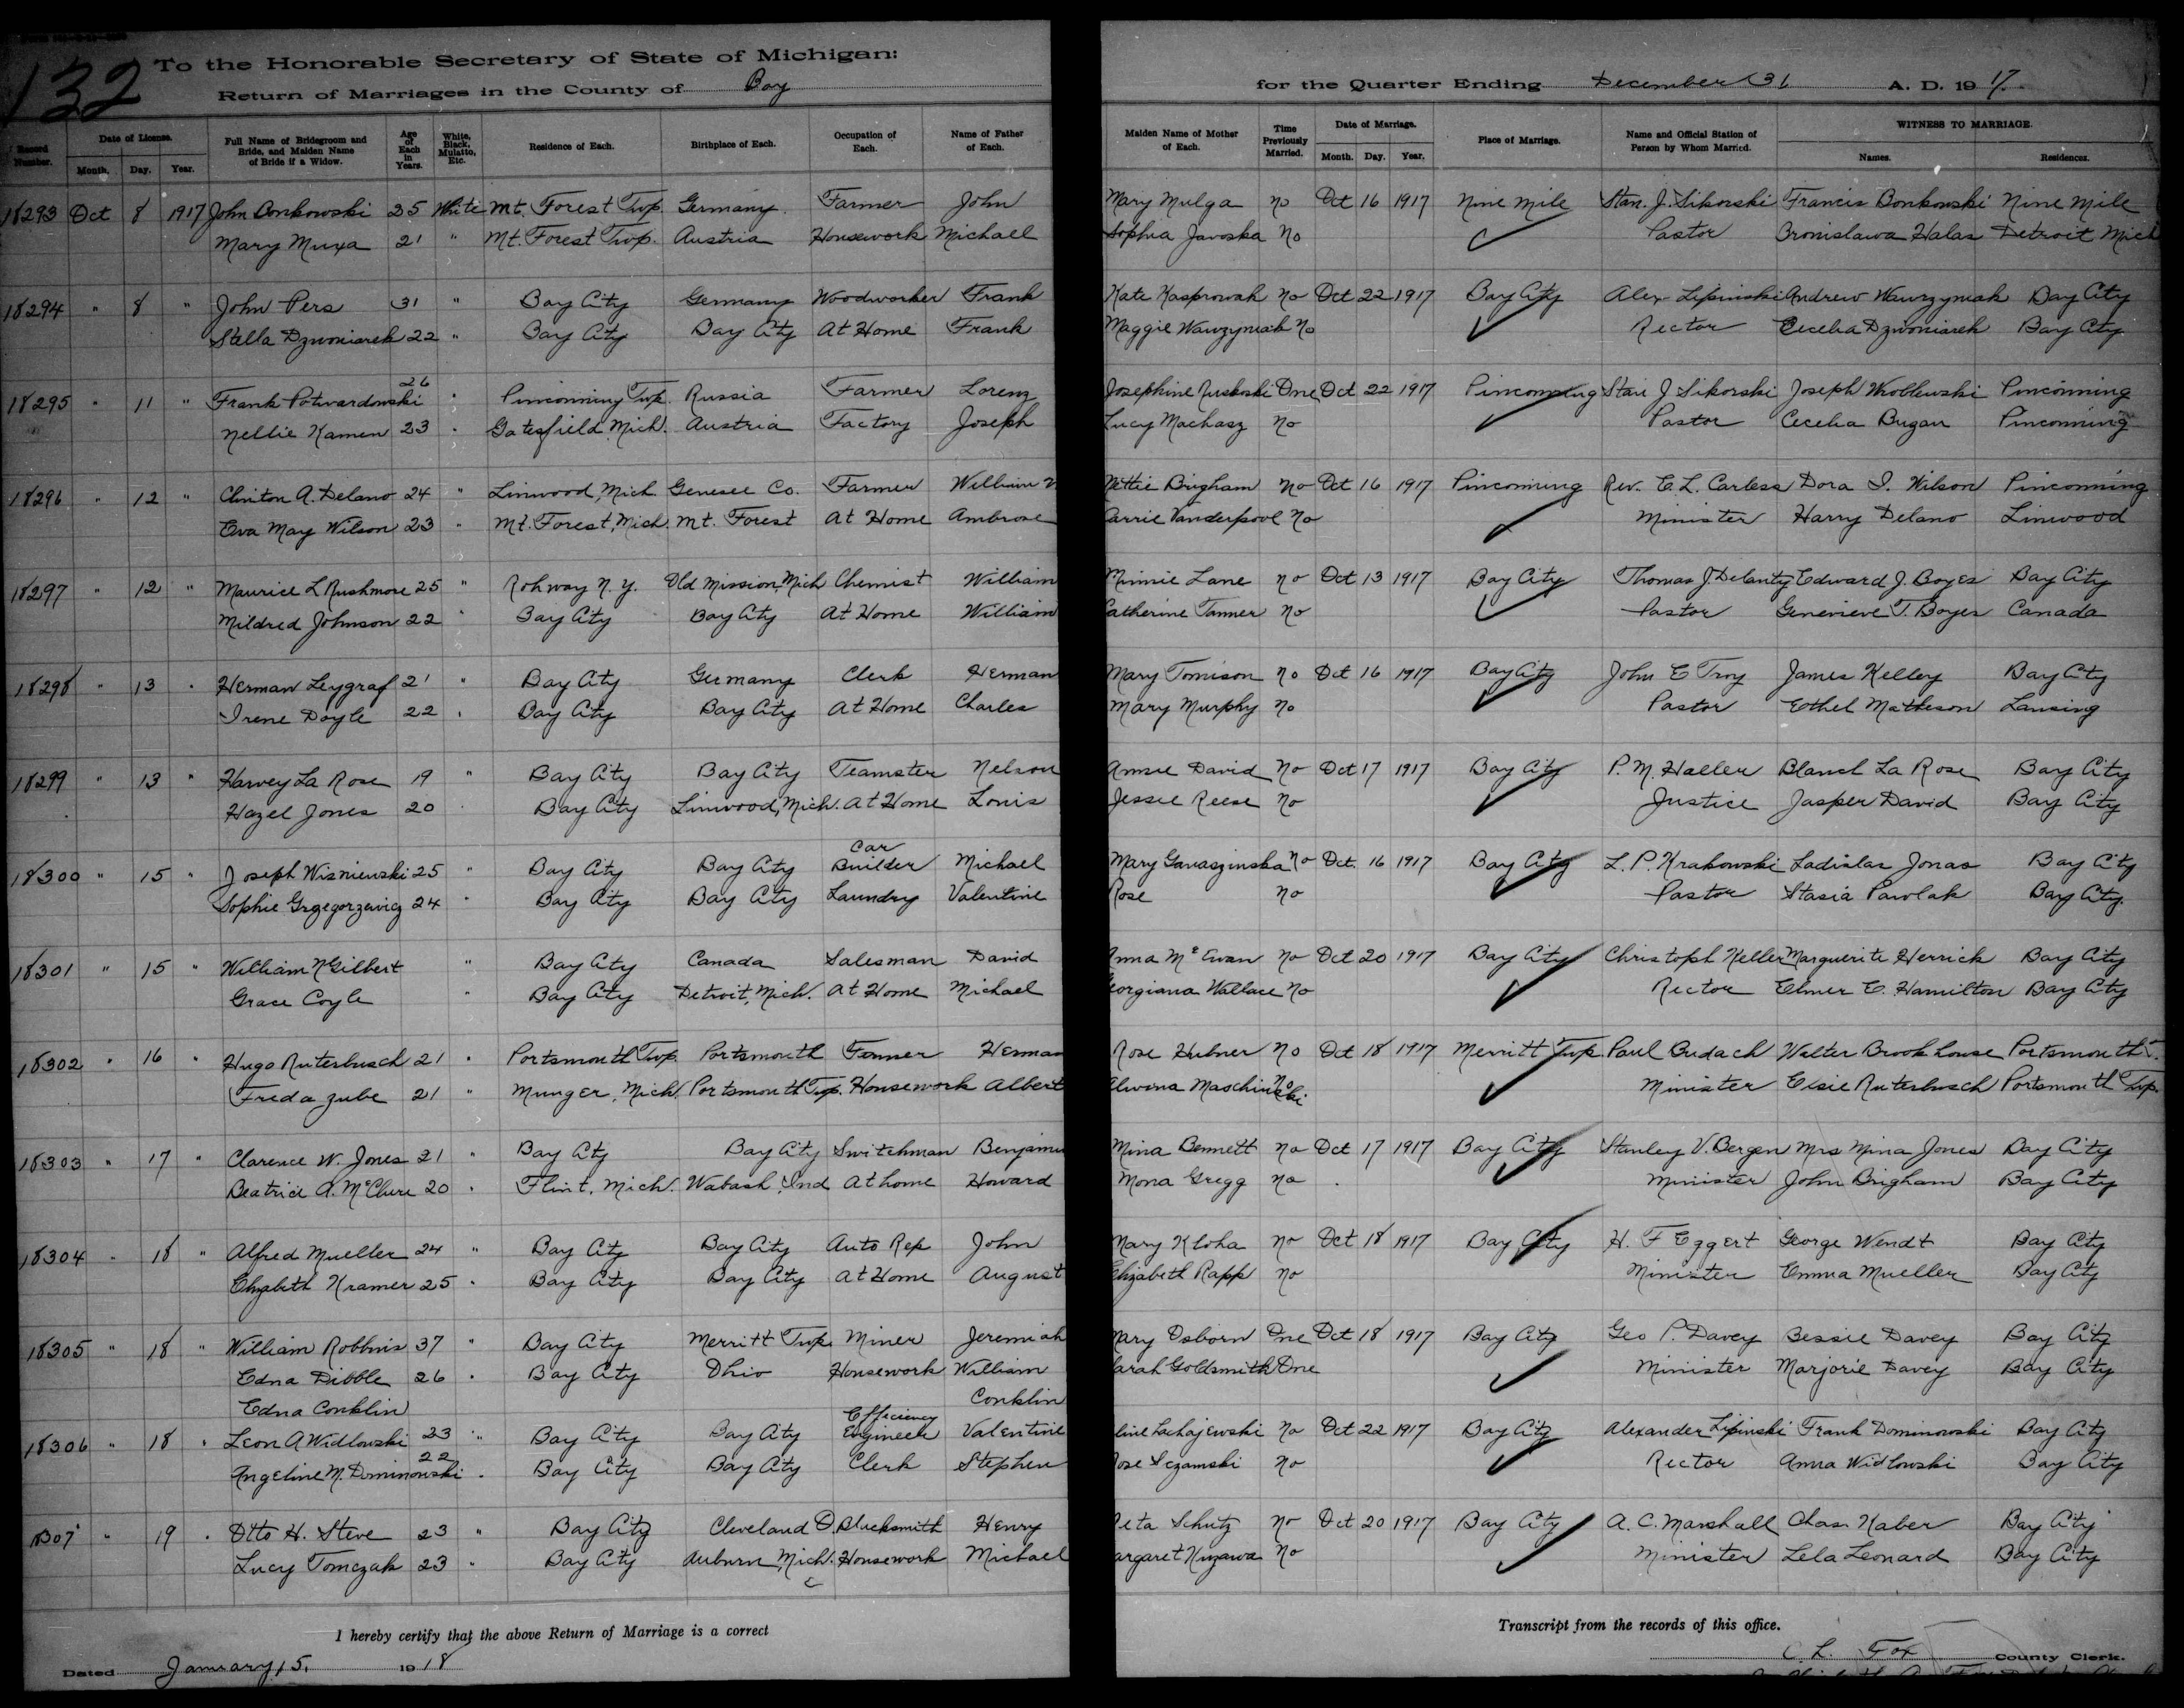 132
To the Honorable Secretary of State of Michigan:
Return of Marriages in the County of Bay
for the Quarter Ending December 31 A. D. 1917.
Record Number.
Date of License.
Month. Day. Year.
Full Name of Bridegroom and Bride, and Maiden Name of Bride if a Widow.
Age of Each in Years.
White, Black, Mulatto, Etc.
Residence of Each.
Birthplace of Each.
Occupation of Each.
Name of Father of Each.
Maiden Name of Mother of Each.
Time Previously Married.
Date of Marriage.
Month. Day. Year.
Place of Marriage.
Name and Official Station of Person by Whom Married.
WITNESS TO MARRIAGE.
Names. Residences.
18293 Oct 8 1917 John Bonkowski 25 White Mt. Forest Twp. Germany. Farmer John Mary Mulga no Oct 16 1917 Nine Mile Stan. J. Sikorski Francis Bonkowski Nine Mile
Mary Muxa 21 " Mt. Forest Twp. Austria Housework Michael Sophia Javoska No Pastor Bronislawa Halas Detroit Mich
18294 " 8 " John Pers 31 " Bay City Germany Woodworker Frank Kate Kasprowak no Oct 22 1917 Bay City Alex Lipinski Andrew Wawrzyniak Bay City
Stella Dzwoniarek 22 " Bay City Bay City At Home Frank Maggie Wawrzyniak No Rector Cecelia Dzwoniarek Bay City
18295 " 11 " Frank Potwardowski 26 " Pinconning Twp. Russia Farmer Lorenz Josephine Ruskoski One Oct 22 1917 Pinconning Stan J Sikorski Joseph Wroblewski Pinconning
Nellie Kamen 23 " Gatesfield Mich. Austria Factory Joseph Lucy Machasz no Pastor Cecelia Bugan Pinconning
18296 " 12 " Clinton A. Delano 24 " Linwood, Mich Genesee Co. Farmer William Nettie Brigham no Oct 16 1917 Pinconning Rev. E. L. Carless Dora I. Wilson Pinconning
Eva May Wilson 23 " Mt. Forest, Mich. Mt. Forest At Home Ambrose Carrie Vanderpool no Minister Harry Delano Linwood
18297 " 12 " Maurice L Rushmore 25 " Rohway N. Y. Old Mission, Mich Chemist William Minnie Lane no Oct 13 1917 Bay City Thomas J. Delanty Edward J. Boyes Bay City
Mildred Johnson 22 " Bay City Bay City At Home William Catherine Tanner no Pastor Genevieve T. Boyes Canada
18298 " 13 " Herman Leygraf 21 " Bay City Germany Clerk Herman Mary Tomison no Oct 16 1917 Bay City John E Troy James Kelley Bay City
Irene Doyle 22 " Bay City Bay City At Home Charles Mary Murphy no Pastor Ethel Matheson Lansing
18299 " 13 " Harvey La Rose 19 " Bay City Bay City Teamster Nelson Amsie David no Oct 17 1917 Bay City P. M. Haller Blanch La Rose Bay City
Hazel Jones 20 Bay City Linwood, Mich. At Home Louis Jessie Reese no Justice Jasper David Bay City
18300 " 15 " Joseph Wisniewski 25 " Bay City Bay City Car Builder Michael Mary Gawaszinska no Oct. 16 1917 Bay City L. P. Krakowski Ladislas Jonas Bay City
Sophie Grzegorzewicz 24 " Bay City Bay City Laundry Valentine Rose no Pastor Stasia Pawlak Bay City.
18301 " 15 " William N Gilbert " Bay City Canada Salesman David Anna McEwan no Oct 20 1917 Bay City Christoph Keller Marguerite Herrick Bay City
Grace Coyle " Bay City Detroit, Mich. At Home Michael Georgiana Wallace no Rector Elmer E. Hamilton Bay City
18302 " 16 " Hugo Ruterbusch 21 " Portsmouth Twp. Portsmouth Farmer Herman Rose Hubner no Oct 18 1917 Merritt Twp. Paul Budach Walter Brookhouse Portsmouth T.
Freda Zube 21 " Munger, Mich. Portsmouth Twp. Housework Albert Alwona Maschinski no Minister Elsie Ruterbusch Portsmouth Twp.
18303 " 17 " Clarence W. Jones 21 " Bay City Bay City Switchman Benjamin Mina Bennett no Oct 17 1917 Bay City Stanley V. Bergen Mrs Mina Jones Bay City
Beatrice A. McClure 20 " Flint, Mich. Wabash, Ind At home Howard Mona Gregg no Minister John Brigham Bay City
18304 " 18 " Alfred Mueller 24 " Bay City Bay City Auto Rep John Mary Kloha no Oct 18 1917 Bay City H. F Eggert George Wendt Bay City
Elizabeth Kramer 25 " Bay City Bay City At Home August Elizabeth Rapp no Minister Emma Mueller Bay City
18305 " 18 " William Robbins 37 " Bay City Merritt Twp. Miner Jeremiah Mary Osborn One Oct 18 1917 Bay City Geo P. Davey Bessie Davey Bay City
Edna Dibble 26 " Bay City Ohio Housework William Sarah Goldsmith One Minister Marjorie Davey Bay City
Edna Conklin Conklin
18306 " 18 " Leon A Widlowski 23 " Bay City Bay City Efficiency Engineer Valentine Lschajewski no Oct 22 1917 Bay City Alexander Lipinski Frank Dominowski Bay City
Angeline M. Dominowski 22 " Bay City Bay City Clerk Stephen Rose Sczamski no Rector Anna Widlowski Bay City
18307 " 19 " Otto H. Steve 23 " Bay City Cleveland O. Blacksmith Henry Meta Schutz no Oct 20 1917 Bay City A. C. Marshall Chas. Kaber Bay City
Lucy Tomczak 23 " Bay City Auburn, Mich. Housework Michael Margaret Kuzawa no Minister Lela Leonard Bay City
I hereby certify that the above Return of Marriage is a correct Transcript from the records of this office.
Dated January 15, 1918 C. L. Fox County Clerk.